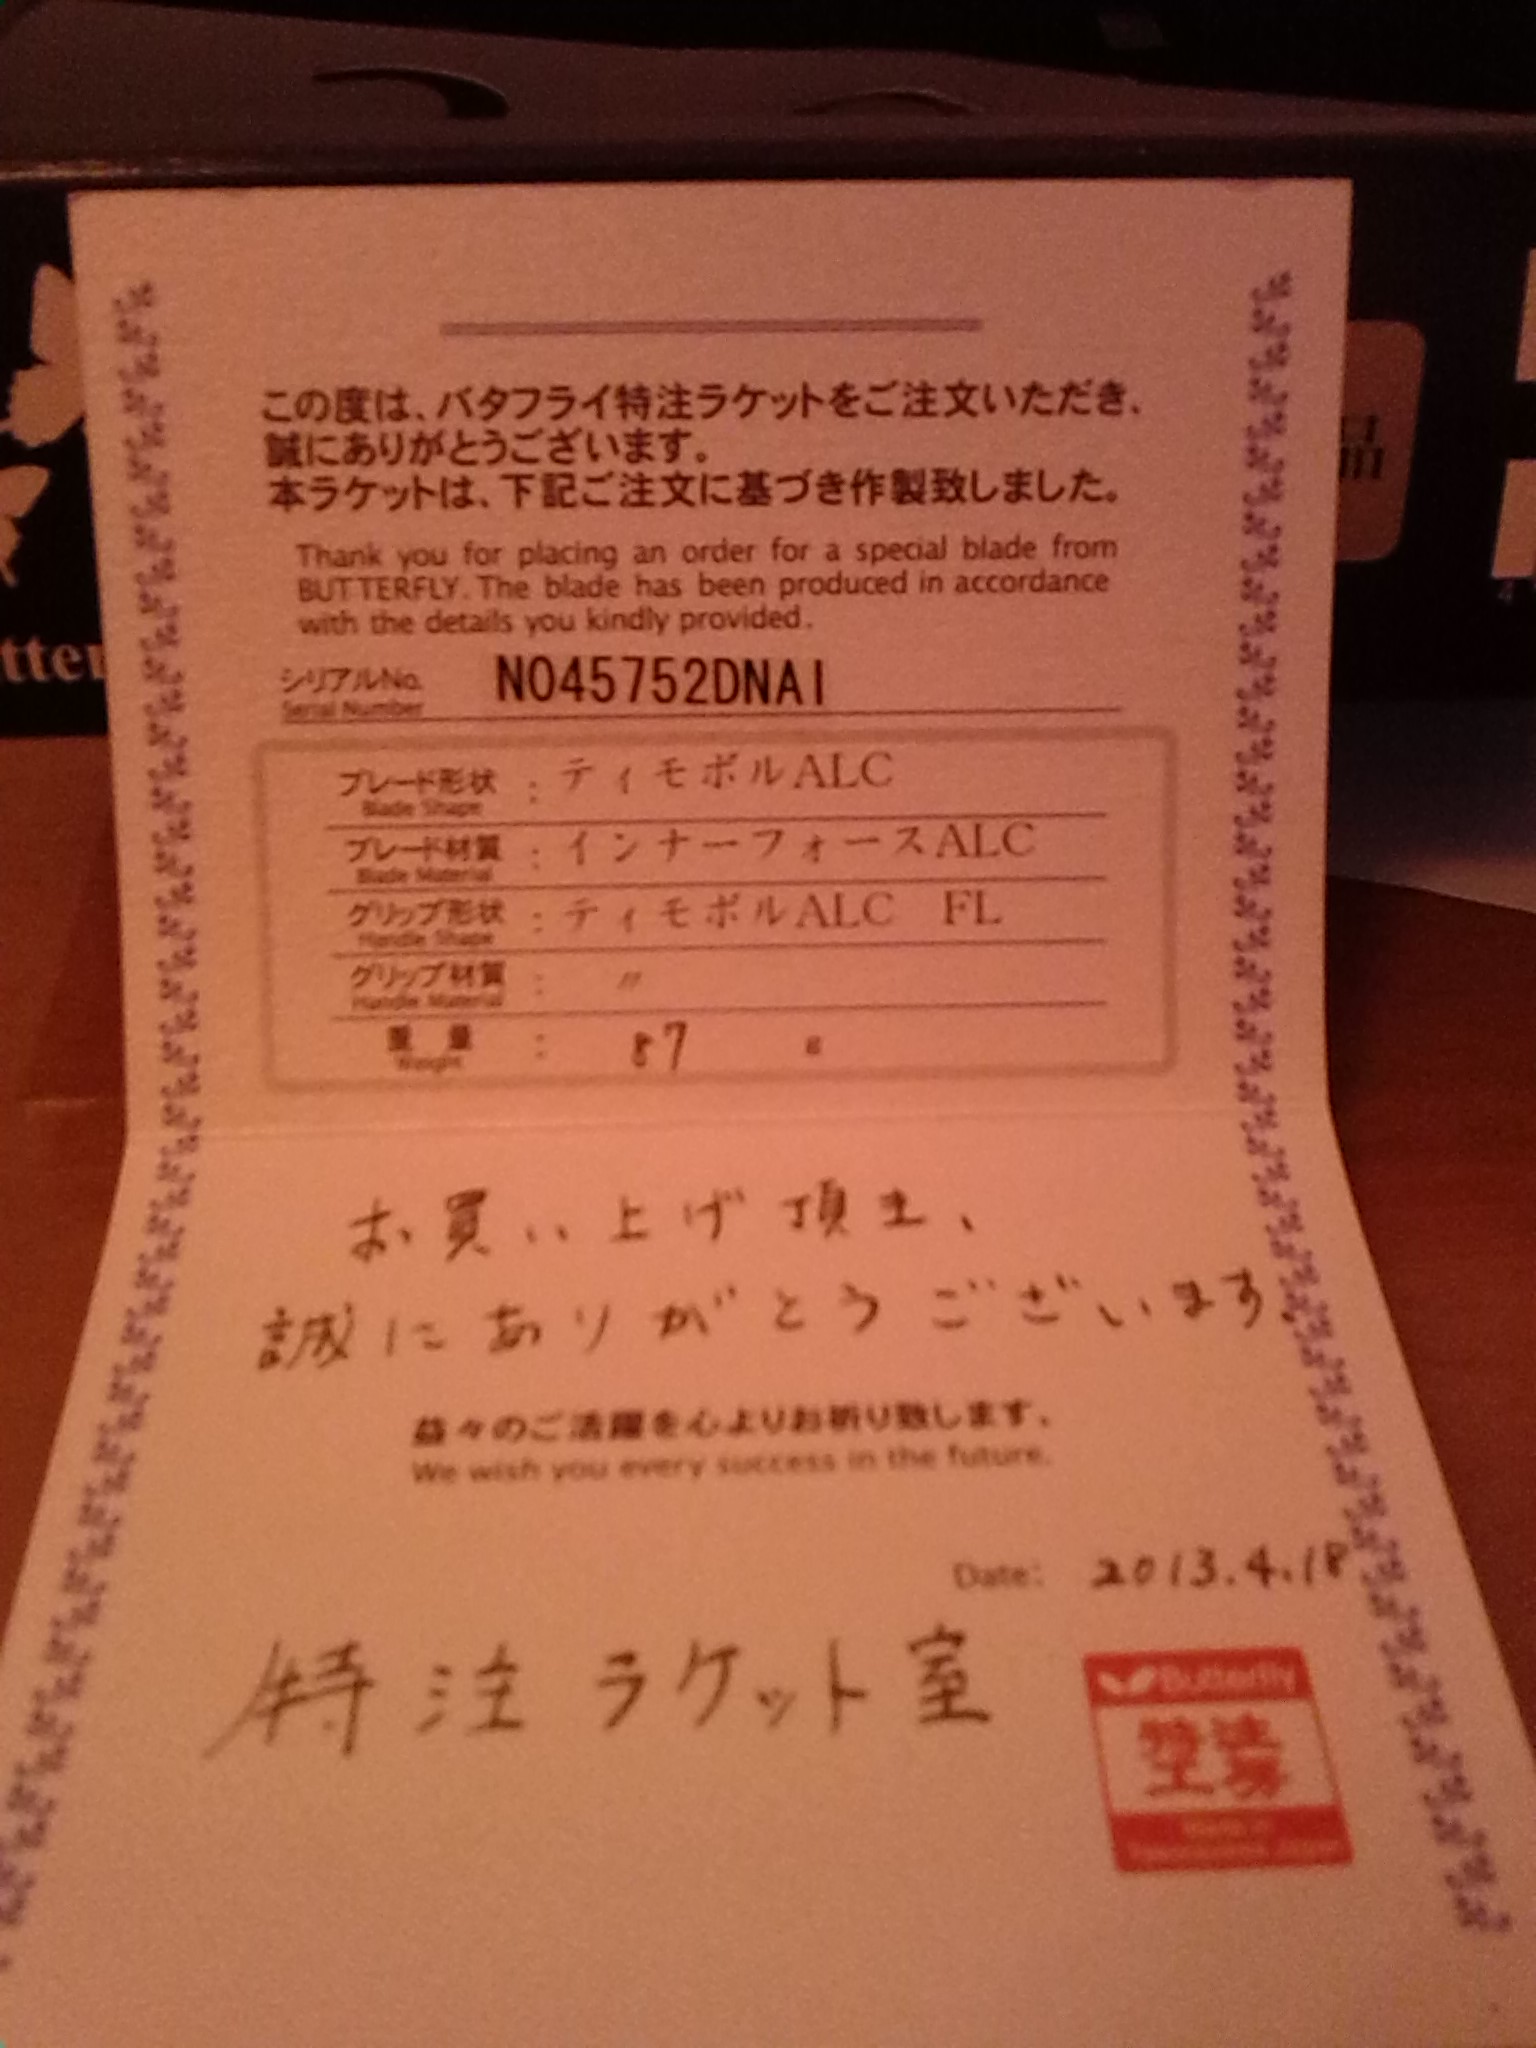 この度は、バタフライ特注ラケットをご注文いただき、
誠にありがとうございます。
本ラケットは、下記ご注文に基づき作製致しました。
Thank you for placing an order for a special blade from
BUTTERFLY. The blade has been produced in accordance
with the details you kindly provided.
シリアルNo. NO45752DNAI
Serial Number
ブレード形状 : ティモボルALC
Blade Shape
ブレード材質 : インナーフォースALC
Blade Material
グリップ形状 : ティモボルALC FL
Handle Shape
グリップ材質 : 〃
Handle Material
重量 : 87 g
Weight
お買い上げ頂き、
誠にありがとうございます。
益々のご活躍を心よりお祈り致します。
We wish you every success in the future.
Date: 2013.4.18
特注ラケット室
Butterfly